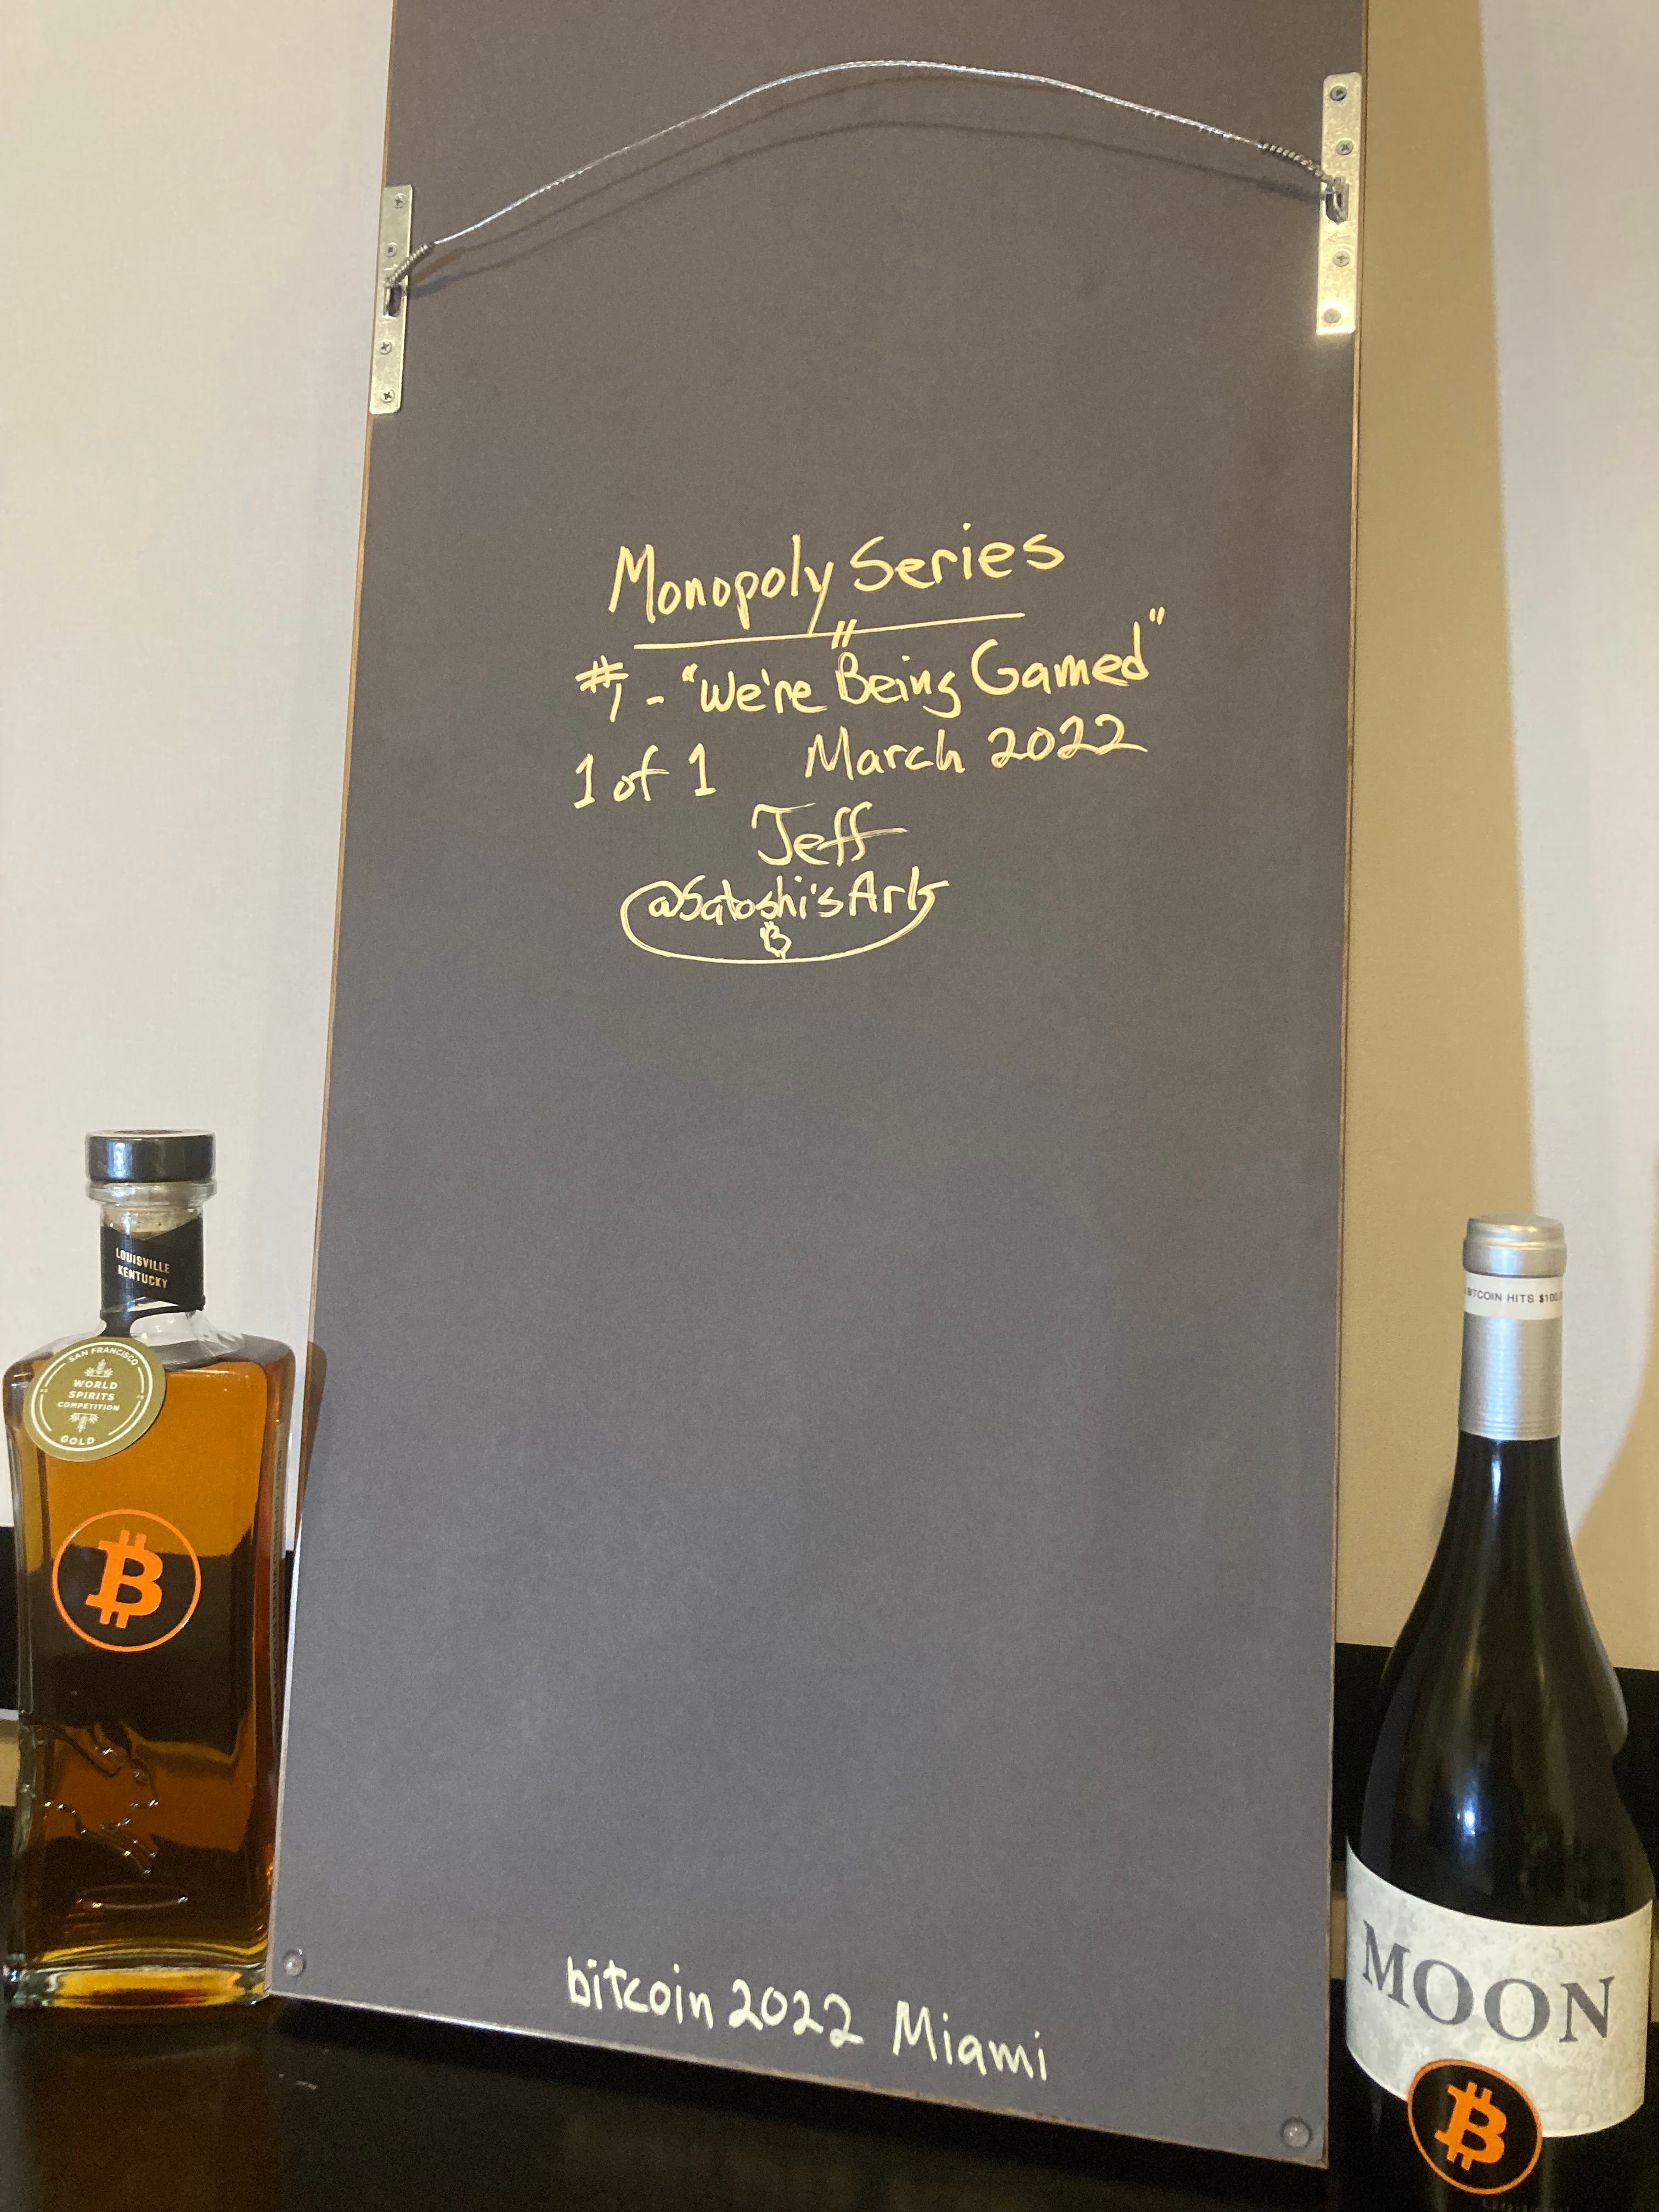 Monopoly Series
#1 - "We're Being Gamed"
1 of 1 March 2022
Jeff
@Satoshi'sArk
₿
bitcoin 2022 Miami
LOUISVILLE
KENTUCKY
SAN FRANCISCO
WORLD
SPIRITS
COMPETITION
GOLD
₿
BITCOIN HITS $100,
MOON
₿